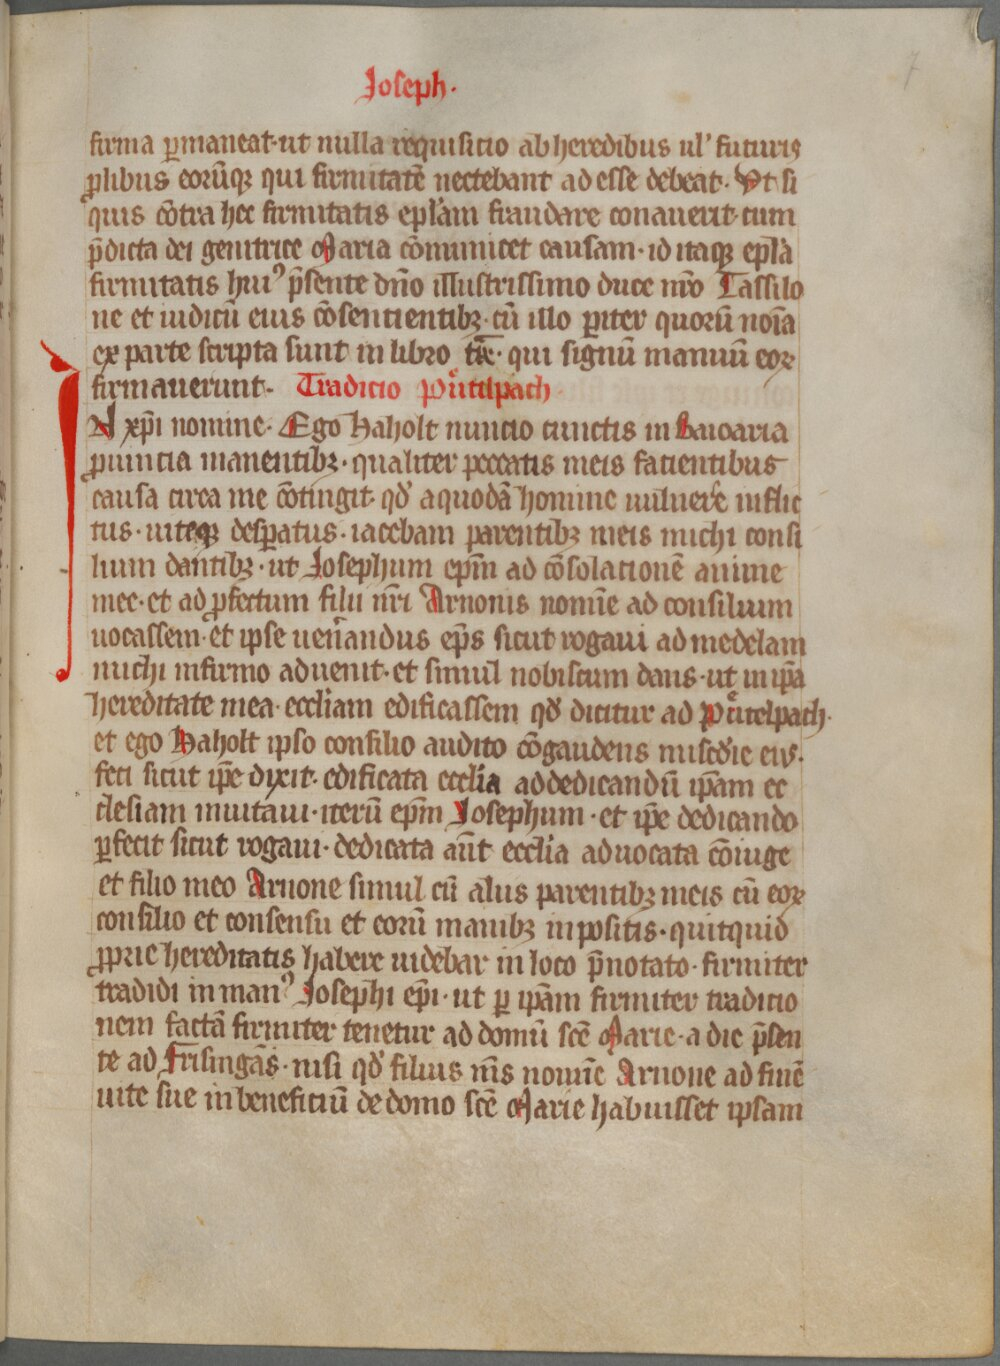 Joseph.
7
firma ꝑmaneat· ut nulla requisicio ab heredibus ul' futuris
ꝓlibus eorūqꝫ qui firmitatē nectebant ad esse debeat· Vt si
quis cōtra hec firmitatis epl'am fraudare conauerit· cum
p̄dicta dei genitrice Maria cōmunicet causam· id itaqꝫ epl'a
firmitatis huiꝰ p̄sente dn̄o illustrissimo duce nr̄o Tassilo
ne et iudicū eius cōsencientibꝫ· cū illo ꝑiter quorū noīa
ex parte scripta sunt in libro t̄re· qui signū manuū eoꝝ
firmauerunt· Tradicio Puͤtelpach
IN xp̄i nomine· Ego Haholt nuncio cunctis in Baioaria
ꝓuincia manentibꝫ· qualiter peccatis meis facientibus
causa circa me cōtingit· qd' a quodā homine uulnere inflic
tus· uiteqꝫ desꝑatus· iacebam parentibꝫ meis michi consi
lium dantibꝫ· ut Josephum ep̄m ad cōsolacionē anime
mee· et ad ꝓfectum filii nr̄i Arnonis nomīe ad consilium
uocassem· et ipse uen̄andus ep̄s sicut rogaui ad medelam
michi infirmo aduenit· et simul nobiscum dans· ut in ip̄a
hereditate mea· eccl'iam edificassem qd' dicitur ad Puͤtelpach·
et ego Haholt ipso consilio audito cōgaudens misc̄die eiꝰ·
feci sicut ip̄e dixit· edificata eccl'ia ad dedicandū ip̄am ec
clesiam inuitaui· iterū ep̄m Josephum· et ip̄e dedicando
ꝑfecit sicut rogaui· dedicata aūt eccl'ia aduocata cōiuge
et filio meo Arnone simul cū aliis parentibꝫ meis cū eoꝝ
consilio et consensu et eorū manibꝫ inpositis· quitquid
ꝓprie hereditatis habere uidebar in loco p̄notato· firmiter
tradidi in manꝰ Josephi ep̄i· ut ꝑ ip̄am firmiter tradicio
nem factā firmiter tenetur ad domū sc̄e Marie· a die p̄sen
te ad Frisingās· nisi qd' filius m̄s nomīe Arnone ad finē
uite sue in beneficiū de domo sc̄e Marie habuisset ipsam